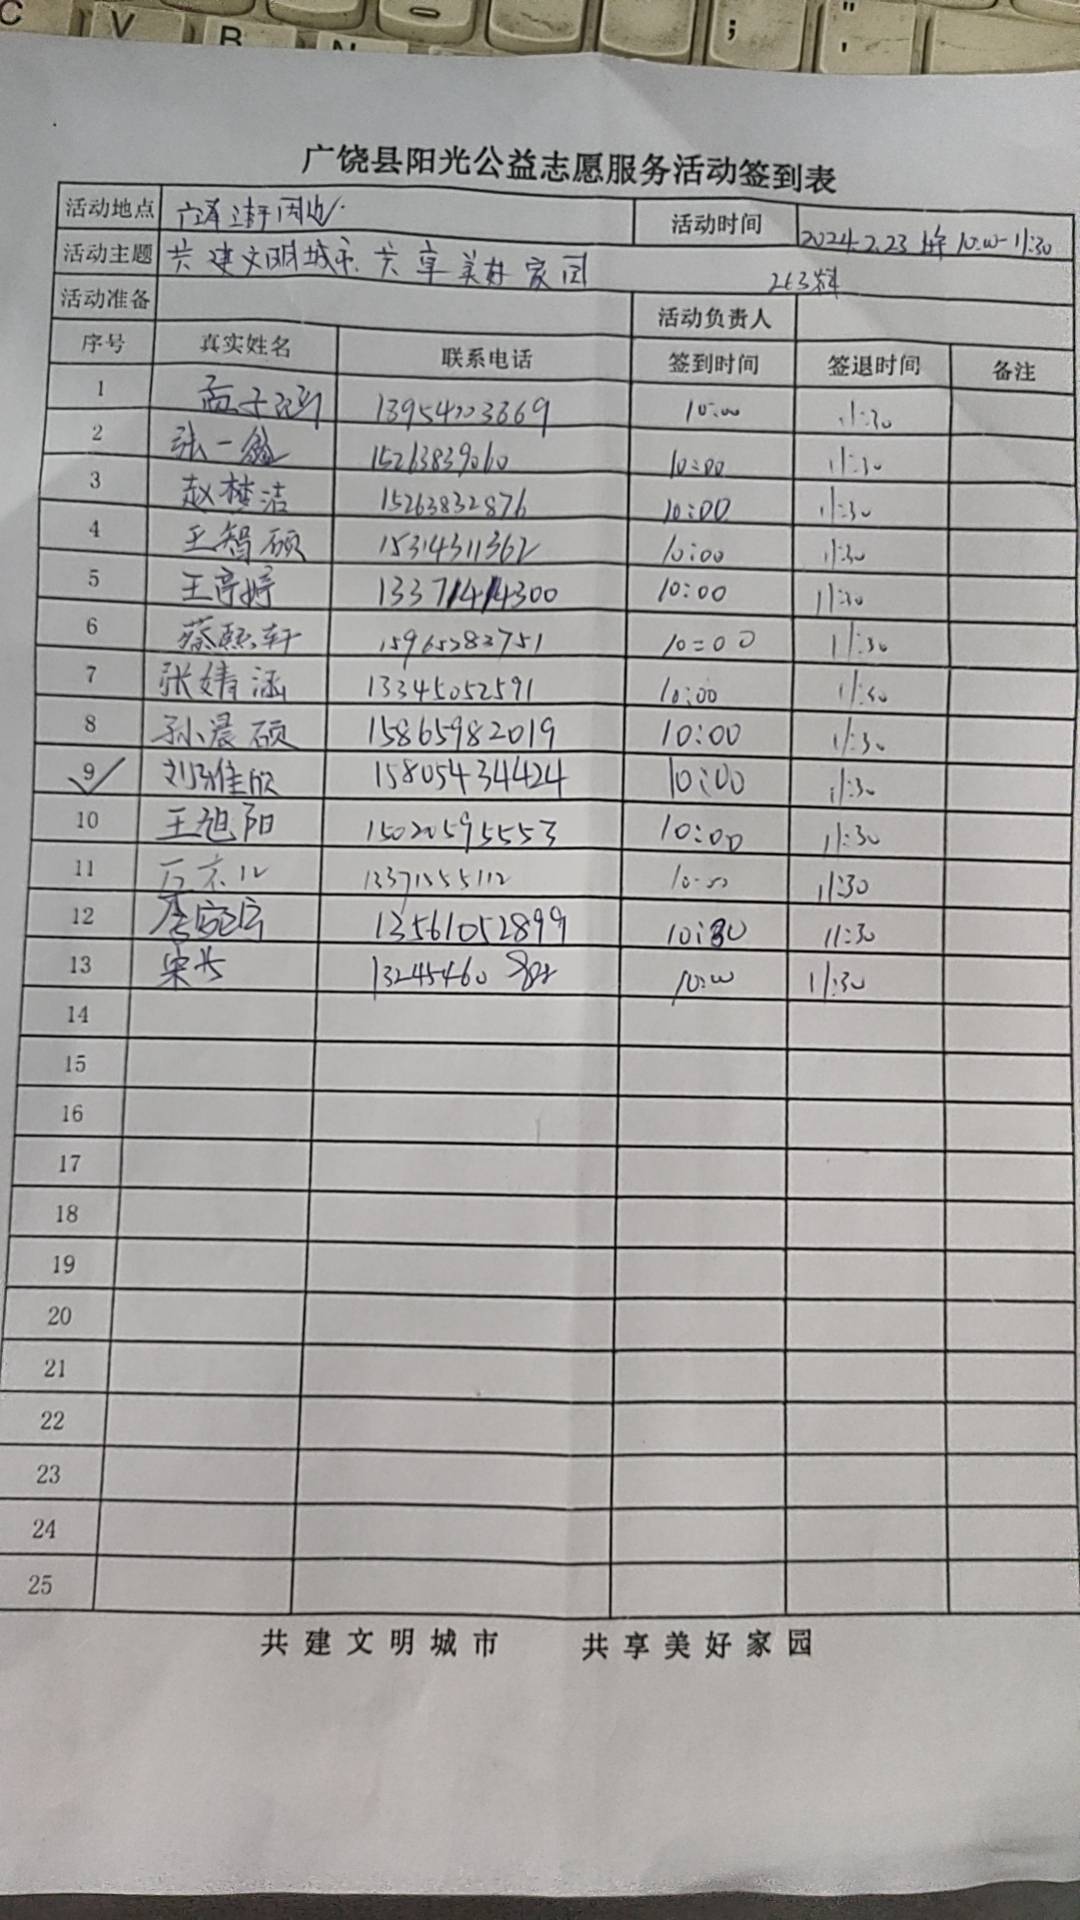 C V B N ; " '
广饶县阳光公益志愿服务活动签到表
活动地点 周边 活动时间 2024.2.23 10:00-11:30
活动主题 共建文明城市 共享美好家园
活动准备 活动负责人
序号 真实姓名 联系电话 签到时间 签退时间 备注
1 孟子 10:00 11:30
2 张一鑫 15263839060 10:00 11:30
3 赵梦洁 15263832876 10:00 11:30
4 王智硕 15314311362 10:00 11:30
5 王亭婷 13371414300 10:00 11:30
6 蔡熙轩 15965283751 10:00 11:30
7 张婧涵 13345052591 10:00 11:30
8 孙晨硕 15865982019 10:00 11:30
9 刘雅欣 15805434424 10:00 11:30
10 王旭阳 15020595553 10:00 11:30
11 13371555112 10:00 11:30
12 13561052899 11:30
13 10:00 11:30
14
15
16
17
18
19
20
21
22
23
24
25
共建文明城市 共享美好家园